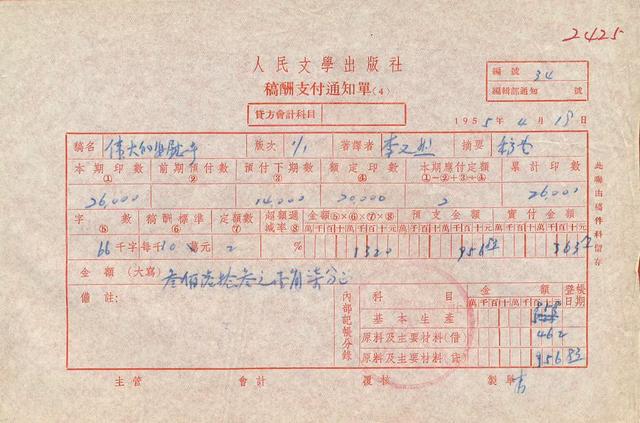 2425
人民文學出版社
稿酬支付通知單(4)
編號 34
編輯部通知 號
貸方會計科目
1955年4月18日
稿名 偉大的 版次 1/1 著譯者 李又然 摘要
本期印數① 前期預付數② 預付下期數③ 額定印數④ 本期應付定額①-②+③÷④ 累計印數
26,000 14,000 20,000 2 26,000
字數⑤ 稿酬標準⑥ 定額數⑦ 超額遞減率⑧ 金額⑤×⑥×⑦×⑧ 預支金額 實付金額
66千字 每千10萬元 2 % 1320
金額(大寫) 叁佰
備註:
內部記帳分錄
科目 金額 登帳日期
基本生產
原料及主要材料(借) 462
原料及主要材料(貸)
主管 會計 覆核 製單
此聯由稿件科留存